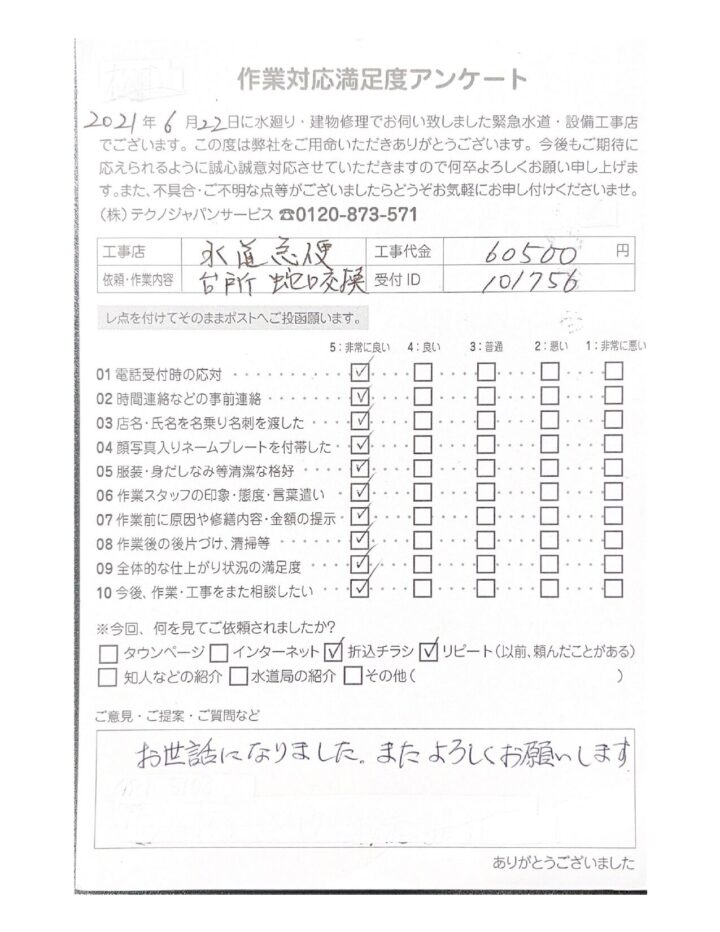 作業対応満足度アンケート
2021年6月22日に水廻り・建物修理でお伺い致しました緊急水道・設備工事店
でございます。この度は弊社をご用命いただきありがとうございます。今後もご期待に
応えられるように誠心誠意対応させていただきますので何卒よろしくお願い申し上げま
す。また、不具合・ご不明な点等がございましたらどうぞお気軽にお申し付けくださいませ。
(株)テクノジャパンサービス ☎0120-873-571
工事店 水道急便 工事代金 60500円
依頼・作業内容 台所 蛇口交換 受付 ID 101756
レ点を付けてそのままポストへご投函願います。
5:非常に良い 4:良い 3:普通 2:悪い 1:非常に悪い
01 電話受付時の応対 ····· ☑ ··· ☐ ··· ☐ ··· ☐ ··· ☐
02 時間連絡などの事前連絡 ····· ☑ ··· ☐ ··· ☐ ··· ☐ ··· ☐
03 店名・氏名を名乗り名刺を渡した ··· ☑ ··· ☐ ··· ☐ ··· ☐ ··· ☐
04 顔写真入りネームプレートを付帯した ·· ☑ ··· ☐ ··· ☐ ··· ☐ ··· ☐
05 服装・身だしなみ等清潔な格好 ····· ☑ ··· ☐ ··· ☐ ··· ☐ ··· ☐
06 作業スタッフの印象・態度・言葉遣い ·· ☑ ··· ☐ ··· ☐ ··· ☐ ··· ☐
07 作業前に原因や修繕内容・金額の提示 · ☑ ··· ☐ ··· ☐ ··· ☐ ··· ☐
08 作業後の後片づけ、清掃等 ····· ☑ ··· ☐ ··· ☐ ··· ☐ ··· ☐
09 全体的な仕上がり状況の満足度 ····· ☑ ··· ☐ ··· ☐ ··· ☐ ··· ☐
10 今後、作業・工事をまた相談したい ··· ☑ ··· ☐ ··· ☐ ··· ☐ ··· ☐
※今回、何を見てご依頼されましたか?
☐ タウンページ ☐ インターネット ☑ 折込チラシ ☑ リピート(以前、頼んだことがある)
☐ 知人などの紹介 ☐ 水道局の紹介 ☐ その他( )
ご意見・ご提案・ご質問など
お世話になりました。またよろしくお願いします
ありがとうございました